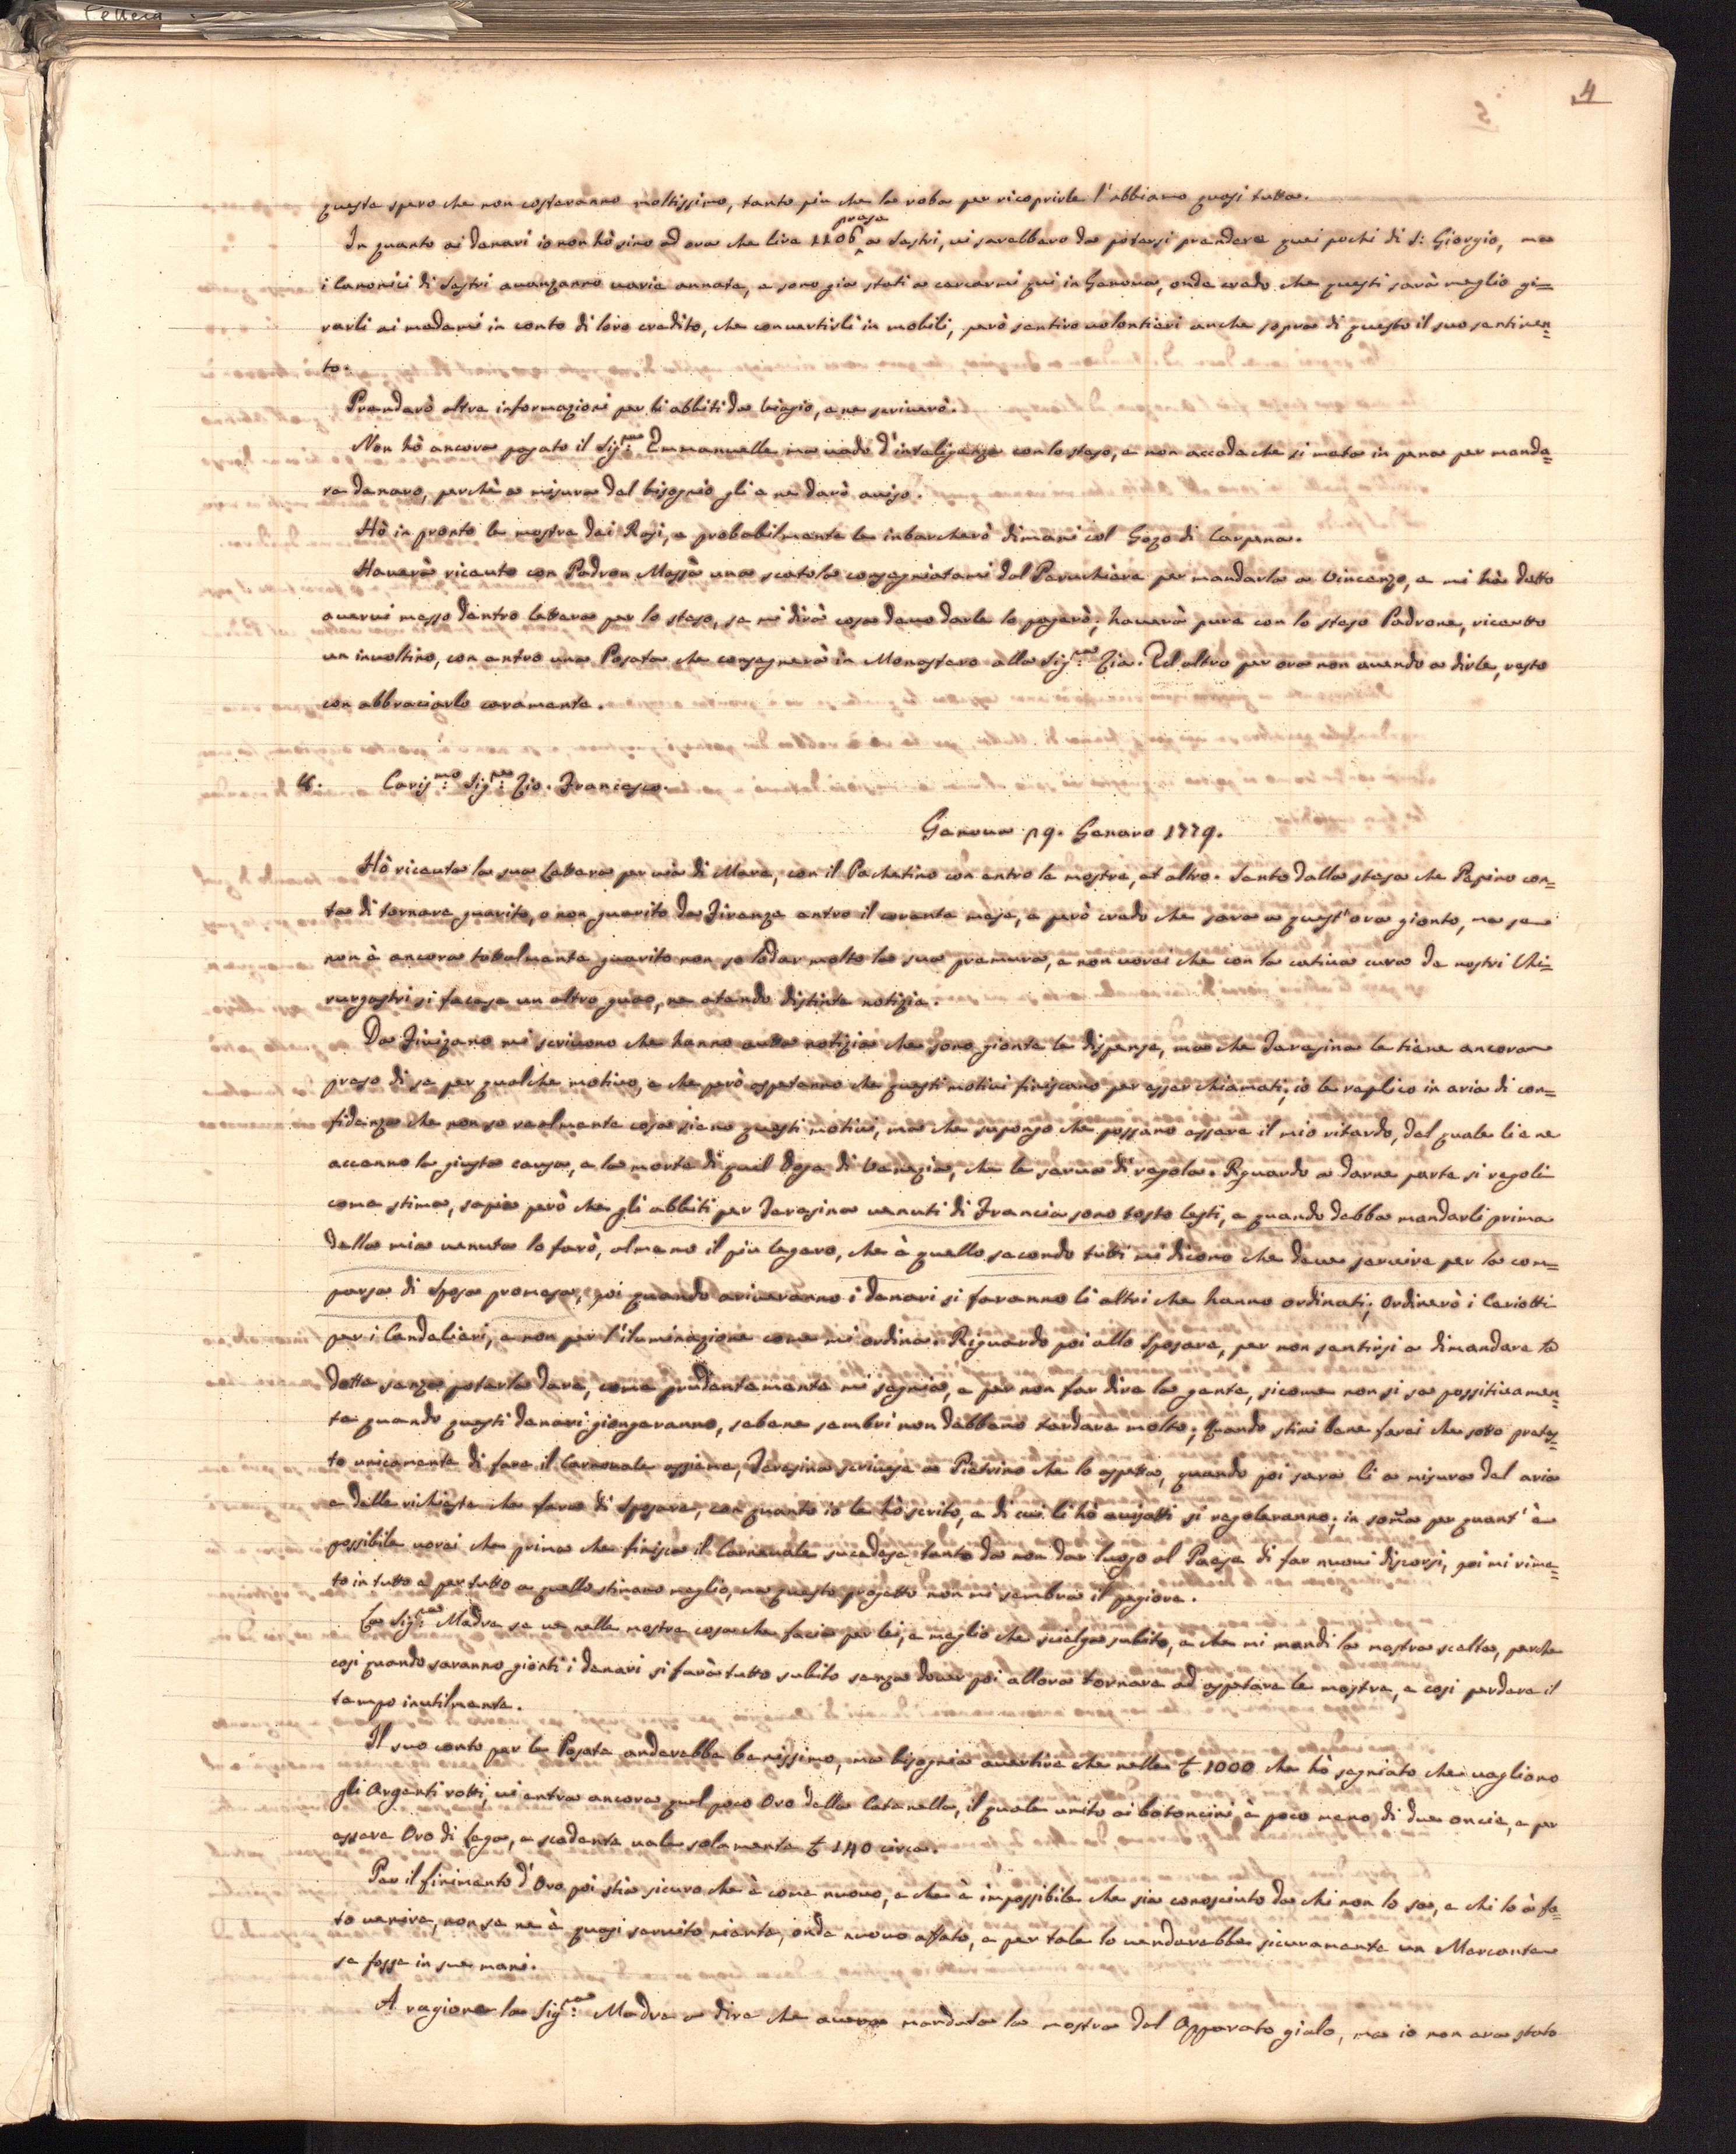 Lettera
4
5
queste spero che non costeranno moltissimo, tanto più che la roba per ricoprirle l'abbiamo quasi tutta.
preso
In quanto ai denari io non hò sino ad ora che lire 1106 a Sestri, vi sarebbero da potersi prendere quei pochi di S: Giorgio, ma
i Canonici di Sestri avanzanno varie annate, e sono gia stati a cercarmi qui in Genova, onde credo che questi sarà meglio gi=
rarli ai medemi in conto di loro credito, che convertirli in mobili, però sentirò volontieri anche sopra di questo il suo sentimen=
to.
Prenderò altre informazioni per li abbiti da viagio, e ne scriverò.
Non hò ancora pagato il Sig:re Emmanuelle ma vado d'inteligenza con lo steso, e non accade che si meta in pena per manda=
re denaro, perchè a misura del bisognio gli e ne darò aviso.
Hò in pronto le mostre dei Rasi, e probabilmente le inbarcherò dimani col Gozo di Carpena.
Haverà riceuto con Padron Massà una scatola consegniatami dal Peruchiere per mandarla a Vincenzo, e mi hà detto
avervi messo dentro lettera per lo steso, se mi dirà cosa devo darle lo pagerò; haverà pure con lo steso Padrone, riceutto
un involtino, con entro una Posata che consegnerà in Monastero alla Sig:ra Zia. Ed altro per ora non avendo a dirle, resto
con abbraciarlo caramente.
4. Caris:mo Sig:re Zio. Francesco.
Genova 19. Genaro 1779.
Hò riceuta la sua Lettera per via di Mare, con il Pachetino con entro le mostre, et altro. Sento dalla stesa che Pepino con=
ta di tornare guarito, o non guarito da Firenze entro il corente mese, e però credo che sara a quest'ora gionto, ma se
non è ancora tottalmente guarito non so lodar molto la sua premura, e non vorei che con la cativa cura de nostri Chi=
rurgastri si facese un altro guao, ne atendo distinte notizie.
Da Fivizano mi scrivono che hanno autta notizia che sono gionte le dispense, ma che Teresina le tiene ancora
preso di se per qualche motivo, e che però aspetanno che questi motivi finiscano per esser chiamati; io le replico in aria di con=
fidenza che non so realmente cosa siano questi motivi, ma che supongo che possano essere il mio ritardo, del quale li e ne
accenno la giusta causa, e la morte di quel Doge di Venezia, che le serva di regola. Riguardo a darne parte si regoli
come stima, sapia però che gli abbiti per Teresina venuti di Francia sono tosto lesti, e quando debba mandarli prima
della mia venuta lo farò, almeno il più legero, che è quello secondo tutti mi dicono che deve servire per la com=
parsa di Sposa promesa, poi quando ariveranno i denari si faranno li altri che hanno ordinati; Ordinerò i Cariotti
per i Candelieri, e non per l'iluminazione come mi ordina. Riguardo poi allo Sposare, per non sentirsi a dimandare la
dotte senza poterla dare, come prudentemente mi segnia, e per non far dire la gente, sicome non si sa possitivamen=
te quando questi denari giongeranno, sebene sembri non debbano tardare molto; Quando stimi bene farei che soto pretes=
to unicamente di fare il Carnovale assieme, Teresina scrivese a Pietrino che lo aspetta, quando poi sara li a misura del aria
e delle richieste che fara di Sposare, con quanto io le hò scrito, e di cui li hò avisatti si regoleranno; in soma per quant'è
possibile vorei che prima che finisca il Carnevale sucedese tanto da non dar luogo al Paese di far nuovi discorsi, poi mi rime=
to in tutto e per tutto a quello stimano meglio, ma questo progetto non mi sembra il pegiore.
La Sig:ra Madre se ve nelle mostre cosa che facia per lei, e meglio che scielga subito, e che mi mandi la mostra scelta, perche
cosi quando saranno gionti i denari si farà tutto subito senza dover poi allora tornare ad aspetare le mostre, e cosi perdere il
tempo inutilmente.
Il suo conto per le Posate anderebbe benissimo, ma bisognia avertire che nelle £ 1000 che hò segniato che vagliono
gli Argenti rotti, vi entra ancora quel poco Oro della Catenella, il quale unito ai botoncini è poco meno di due oncie, e per
essere Oro di Lega, e scadente vale solamente £ 140 circa.
Per il finimento d'Oro poi stia sicuro che è come nuovo, e che è impossibile che sia conosciuto da chi non lo sa, e chi lo à fa=
to venire, non se ne è quasi servito niente, onde nuovo affato, e per tale lo venderebbe sicuramente un Mercante
se fosse in sue mani.
A ragione la Sig:ra Madre a dire che aveva mandata la mostra del Apparato gialo, ma io non ero stato